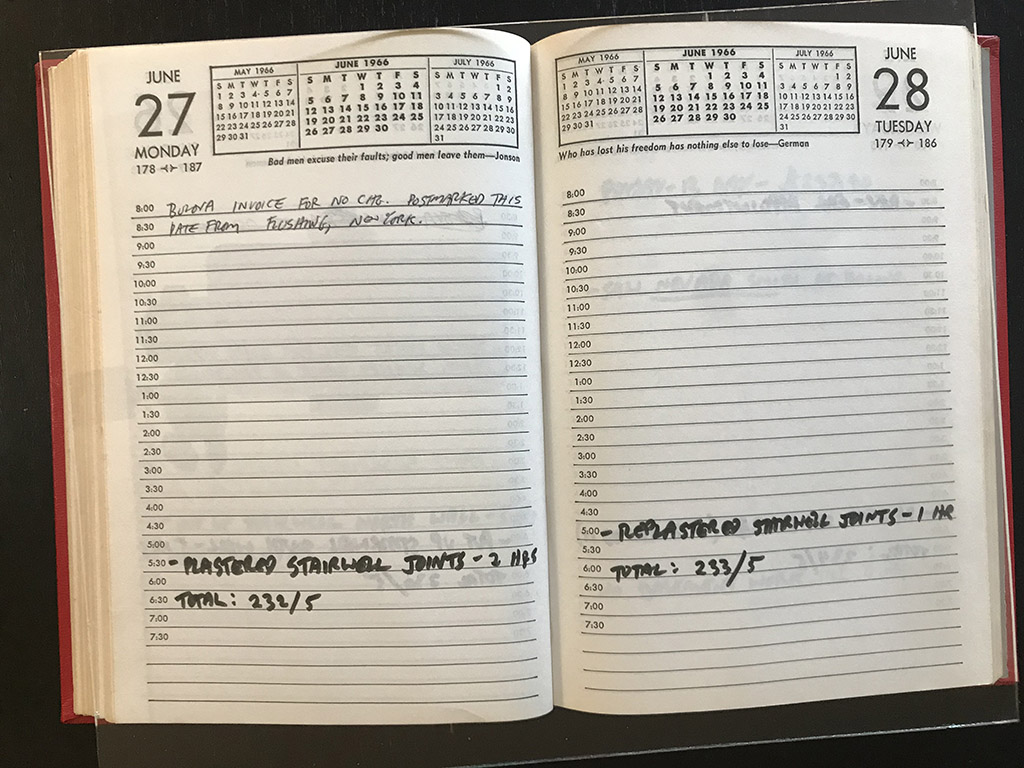 JUNE
27
MONDAY
178 ⤙⤚ 187
MAY 1966
S M T W T F S
1 2 3 4 5 6 7
8 9 10 11 12 13 14
15 16 17 18 19 20 21
22 23 24 25 26 27 28
29 30 31
JUNE 1966
S M T W T F S
1 2 3 4
5 6 7 8 9 10 11
12 13 14 15 16 17 18
19 20 21 22 23 24 25
26 27 28 29 30
JULY 1966
S M T W T F S
1 2
3 4 5 6 7 8 9
10 11 12 13 14 15 16
17 18 19 20 21 22 23
24 25 26 27 28 29 30
31
Bad men excuse their faults; good men leave them—Jonson
8:00 BULOVA INVOICE FOR NO CHG. POSTMARKED THIS
8:30 DATE FROM FLUSHING, NEW YORK.
9:00
9:30
10:00
10:30
11:00
11:30
12:00
12:30
1:00
1:30
2:00
2:30
3:00
3:30
4:00
4:30
5:00
5:30 - PLASTERED STAIRWELL JOINTS - 2 HRS
6:00
6:30 TOTAL: 232/5
7:00
7:30
MAY 1966
S M T W T F S
1 2 3 4 5 6 7
8 9 10 11 12 13 14
15 16 17 18 19 20 21
22 23 24 25 26 27 28
29 30 31
JUNE 1966
S M T W T F S
1 2 3 4
5 6 7 8 9 10 11
12 13 14 15 16 17 18
19 20 21 22 23 24 25
26 27 28 29 30
JULY 1966
S M T W T F S
1 2
3 4 5 6 7 8 9
10 11 12 13 14 15 16
17 18 19 20 21 22 23
24 25 26 27 28 29 30
31
JUNE
28
TUESDAY
179 ⤙⤚ 186
Who has lost his freedom has nothing else to lose—German
8:00
8:30
9:00
9:30
10:00
10:30
11:00
11:30
12:00
12:30
1:00
1:30
2:00
2:30
3:00
3:30
4:00
4:30
5:00 - REPLASTERED STAIRWELL JOINTS - 1 HR
5:30
6:00 TOTAL: 233/5
6:30
7:00
7:30